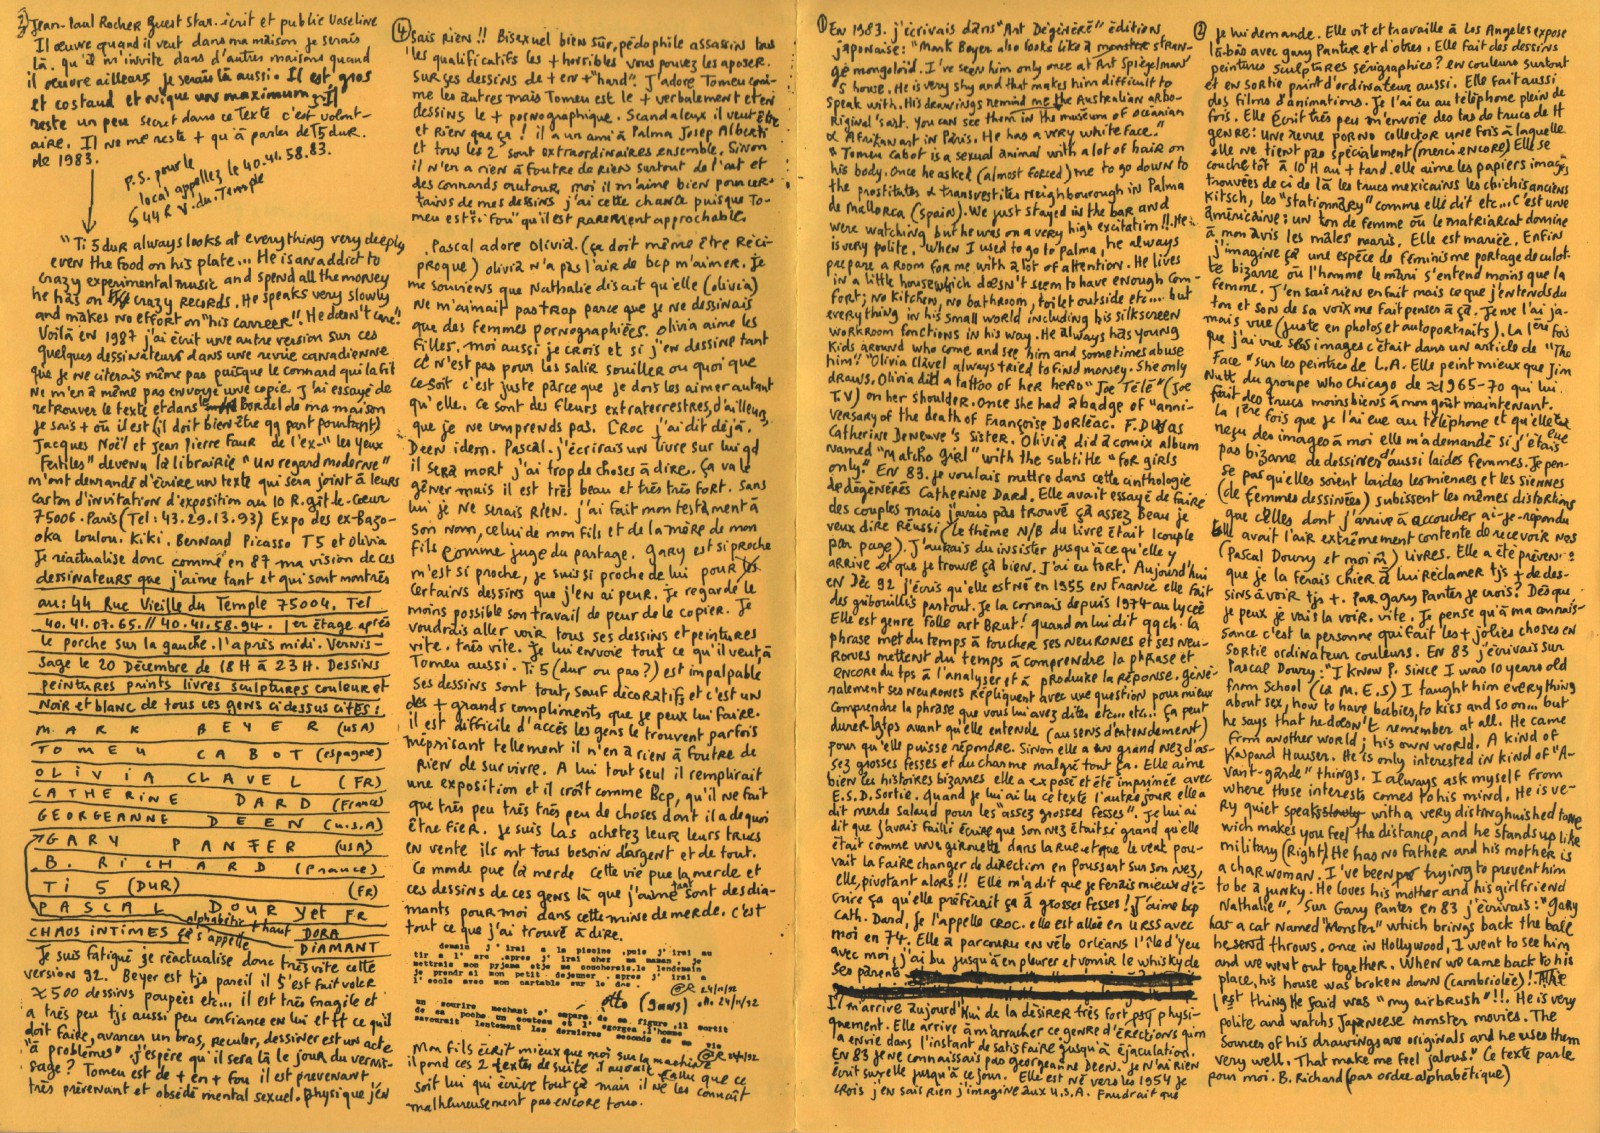 ① En 1983. j'écrivais dans "Art Dégénéré" éditions
japonaise: "Mark Beyer also looks like a monster stran-
ge mongoloid. I've seen him only once at Art Spiegelman
's house. He is very shy and that makes him difficult to
speak with. His drawings remind me the Australian abo-
Riginal's art. You can see them in the museum of oceanian
& African art in Paris. He has a very white face."
" Tomeu Cabot is a sexual animal with a lot of hair on
his body. Once he asked (almost forced) me to go down to
the prostitutes & transvestites Neighbourough in Palma
de Mallorca (spain). We just stayed in the bar and
were watching but he was on a very high excitation!!. He
is very polite. When I used to go to Palma, he always
prepare a room for me with a lot of attention. He lives
in a little house which doesn't seem to have enough com-
fort; no kitchen, no bathroom, toilet outside etc... but
everything in his small world including his silkscreen
workroom fonctions in his way. He always has young
kids around who come and see him and sometimes abuse
him." "Olivia Clavel always tried to find money. She only
draws. Olivia did a tattoo of her hero "Joe Télé" (Joe
T.V) on her shoulder. Once she had a badge of "anni-
versary of the death of Françoise Dorléac. F.D was
Catherine Deneuve's Sister. Olivia did a comix album
named "Matcho girl" with the subtitle "for girls
only". En 83. je voulais mettre dans cette anthologie
de dégénérés Catherine Dard. Elle avait essayé de faire
des couples mais j'avais pas trouvé ça assez beau je
veux dire réussi (le thème N/B du livre était 1 couple
par page). J'aurais du insister jusqu'à ce qu'elle y
arrive et que je trouve çà bien. J'ai eu tort. Aujourd'hui
en Déc 92 j'écris qu'elle est né en 1955 en France elle fait
des gribouillis partout. Je la connais depuis 1974 au lycée
Elle est genre Folle art Brut! quand on lui dit qq ch. la
phrase met du temps à toucher ses neurones et ses neu-
rones mettent du temps à comprendre la phrase et
encore du tps à l'analyser et à produire la réponse. géné-
ralement ses neurones répliquent avec une question pour mieux
comprendre la phrase que vous lui avez dites etc... etc... ça peut
durer lgtps avant qu'elle entende (au sens d'entendement)
pour qu'elle puisse répondre. Sinon elle a un grand nez d'as-
sez grosses fesses et du charme malgré tout ça. Elle aime
bien les histoires bizarres elle a exposé et été imprimée avec
E.S.D.Sortie. Quand je lui ai lu ce texte l'autre jour elle a
dit merde salaud pour les "assez grosses fesses". Je lui ai
dit que j'avais failli écrire que son nez était si grand qu'elle
était comme une girouette dans la rue et que le vent pou-
vait la faire changer de direction en poussant sur son nez,
elle, pivotant alors!! Elle m'a dit que je ferais mieux d'é-
crire ça qu'elle préférait ça à grosses fesses! J'aime bcp
Cath. Dard, je l'appelle CROC. elle est allée en URSS avec
moi en 74. Elle à parcouru en vélo Orléans l'île d'Yeu
avec moi, j'ai bu jusqu'à en pleurer et vomir le whisky de
ses parents
Il m'arrive aujourd'hui de la désirer très fort psy physi-
quement. Elle arrive à m'arracher ce genre d'érections qui m
'a envie dans l'instant de satisfaire jusqu'à éjaculation.
En 83 je ne connaissais pas georgeanne Deen. Je n'ai rien
écrit sur elle jusqu'à ce jour. Elle est né vers les 1954 je
crois j'en sais rien j'imagine aux U.S.A. Faudrait que
② Je lui demande. Elle vit et travaille à Los Angeles expose
là-bas avec gary Panter et d'otres. Elle fait des dessins
peintures sculptures sérigraphies? en couleurs surtout
et en sortie print d'ordinateur aussi. Elle fait aussi
des films d'animations. Je l'ai eu au téléphone plein de
fois. Elle Écrit très peu m'envoie des tas de trucs de tt
genre: Une revue porno collector une fois à laquelle
elle ne tient pas spécialement (merci encore) Elle se
couche tôt à 10 H au + tard. elle aime les papiers images
trouvées de ci de là les trucs mexicains les chichis anciens
kitsch, les "stationnary" comme elle dit etc... C'est une
américaine: un ton de femme où le matriarcat domine
à mon avis les mâles maris. Elle est mariée. Enfin
j'imagine ça une espèce de féminisme portage de culot-
te bizarre où l'homme le mari s'entend moins que la
femme. J'en sais riens en fait mais ce que j'entends du
ton et son de sa voix me fait penser à ça. Je ne l'ai ja-
mais vue (juste en photos et autoportraits). La 1ère fois
que j'ai vue ses images c'était dans un article de "The
Face" sur les peintres de L.A. Elle peint mieux que Jim
Nutt du groupe Who Chicago de ≈ 1965-70 qui lui
fait des trucs moins biens à mon goût maintenant.
La 1ère fois que je l'ai eue au téléphone et qu'elle eut
reçu des images à moi elle m'a demandé si j'étais
pas bizarre de dessiner d'aussi laides femmes. Je pen-
se pas qu'elles soient laides les miennes et les siennes
(de femmes dessinées) subissent les mêmes distortions
que celles dont j'arrive à accoucher ai-je-répondu
Elle avait l'air extrêmement contente de recevoir nos
(Pascal Doury et moi m̂) livres. Elle a été prévenue
que je la ferais chier à lui réclamer tjs + de des-
sins à voir tjs +. Par gary Panter je crois? Dès que
je peux je vais la voir. vite. Je pense qu'à ma connais-
sance c'est la personne qui fait les + jolies choses en
sortie ordinateur couleurs. En 83 j'écrivais sur
Pascal Doury: "I know P. since I was 10 years old
from School (La M.E.S) I taught him everything
about sex, how to have babies, to kiss and so on... but
he says that he doesn't remember at all. He came
from another world; his own world. A kind of
Kaspard Hauser. He is only interested in kind of "A-
vant-garde" things. I always ask myself from
where those interests comes to his mind. He is ve-
ry quiet speaks slowly with a very distinghuished tone
wich makes you feel the distance, and he stands up like
military (Right) He has no father and his mother is
a charwoman. I've been trying to prevent him
to be a junky. He loves his mother and his girlfriend
Nathalie". Sur Gary Panter en 83 j'écrivais: "Gary
has a cat Named "Monster" which brings back the ball
he send throws. once in Hollywood, I went to see him
and we went out together. When we came back to his
place, his house was broken down (cambriolée)! The
1rst thing He said was "my airbrush"!!. He is very
polite and watchs Japaneese monster movies. The
Sources of his drawings are originals and he uses them
very well. That make me feel jalous." Ce texte parle
pour moi. B. Richard (par ordre alphabétique)
③ Jean-Paul Rocher Guest Star. écrit et publie Vaseline
Il œuvre quand il veut dans ma maison je serais
là. qu'il m'invite dans d'autres maisons quand
il œuvre ailleurs je serais là aussi. Il est gros
et costaud et nique un maximum. Il
reste un peu secret dans ce Texte c'est volont-
aire. Il ne me reste + qu'à parler de Ti5 dur.
de 1983.
P.S. pour le
local appellez le 40.41.58.83.
§ 44 R V. du. Temple
"Ti 5 dur always looks at everything very deeply
even the food on his plate... He is an addict to
crazy experimental music and spend all the money
he has on crazy records. He speaks very slowly
and makes no effort on "his carreer". He don't care."
Voilà en 1987 j'ai écrit une autre version sur ces
quelques dessinateurs dans une revue canadienne
que je ne citerais même pas puisque le connard qui la fit
ne m'en à même pas envoyé une copie. J'ai essayé de
retrouver le texte et dans le Bordel de ma maison
je sais + où il est (il doit bien être qq part pourtant)
Jacques Noël et Jean Pierre Faur de l'ex-"les yeux
Fertiles" devenu la librairie "Un regard moderne"
m'ont demandé d'écrire un texte qui sera joint à leurs
carton d'invitation d'exposition au 10 R. gît-le-Cœur
75006. Paris (Tel: 43.29.13.93) Expo des ex-Bazo-
oka loulou. Kiki. Bernard Picasso T5 et olivia
Je réactualise donc comme en 87 ma vision de ces
dessinateurs que j'aime tant et qui sont montrés
au: 44 Rue Vieille du Temple 75004. Tel
40.41.07.65. // 40.41.58.94. 1er étage après
le porche sur la gauche. l'après midi. Vernis-
sage le 20 Décembre de 18 H à 23 H. Dessins
peintures prints livres sculptures couleur et
Noir et blanc de tous ces gens ci dessus cités:
MARK BEYER (USA)
TOMEU CABOT (espagne)
OLIVIA CLAVEL (FR)
CATHERINE DARD (France)
GEORGEANNE DEEN (U.S.A)
GARY PANTER (USA)
B. RICHARD (France)
Ti 5 (DUR) (FR)
PASCAL DOURY et FR
alphabétiq + haut
CHAOS INTIMES ça s'appelle DORA
DIAMANT
Je suis fatigué je réactualise donc très vite cette
version 92. Beyer est tjs pareil il s'est fait voler
≈ 500 dessins poupées etc... il est très fragile et
a très peu tjs aussi peu confiance en lui et tt ce qu'il
doit faire, avancer un bras, reculer, dessiner est un acte
"à problèmes". j'espère qu'il sera là le jour du vernis-
sage? Tomeu est de + en + fou il est prévenant,
très prévenant et obsédé mental sexuel. physique j'en
④ sais rien!! Bisexuel bien sûr, pédophile assassin tous
les qualificatifs les + horribles vous pouvez les aposer.
sur ses dessins de + en + "hard". J'adore Tomeu com-
me les autres mais Tomeu est le + verbalement et en
dessins le + pornographique. Scandaleux il veut être
et Rien que ça! il a un ami à Palma Josep Alberti
et tous les 2 sont extraordinaires ensemble. Sinon
il n'en a rien à foutre de rien surtout de l'art et
des connards autour, moi il m'aime bien pour cer-
tains de mes dessins j'ai cette chance puisque To-
meu est si "fou" qu'il est rarement approchable.
Pascal adore Olivia. (ça doit même être réci-
proque) olivia n'a pas l'air de bcp m'aimer. je
me souviens que Nathalie disait qu'elle (olivia)
ne m'aimait pas trop parce que je ne dessinais
que des femmes pornographiées. Olivia aime les
filles. moi aussi je crois et si j'en dessine tant
ce n'est pas pour les salir souiller ou quoi que
ce soit c'est juste parce que je dois les aimer autant
qu'elle. Ce sont des fleurs extraterrestres, d'ailleurs
que je ne comprends pas. CROC j'ai dit déjà.
Deen idem. Pascal. j'écrirais un livre sur lui qd
il sera mort j'ai trop de choses à dire. Ça va le
gêner mais il est très beau et très très fort. Sans
lui je ne serais rien. j'ai fait mon testament à
son nom, celui de mon fils et de la mère de mon
fils comme juge du partage. Gary est si proche
m'est si proche, je suis si proche de lui pour
certains dessins que j'en ai peur. Je regarde le
moins possible son travail de peur de le copier. Je
voudrais aller voir tous ses dessins et peintures
vite. très vite. Je lui envoie tout ce qu'il veut, à
Tomeu aussi. Ti 5 (dur ou pas?) est impalpable
ses dessins sont tout, sauf décoratifs et c'est un
des + grands compliments que je peux lui faire.
il est difficile d'accès les gens le trouvent parfois
méprisant tellement il n'en à rien à foutre de
Rien de survivre. A lui tout seul il remplirait
une exposition et il croît comme Bcp, qu'il ne fait
que très peu très très peu de choses dont il a de quoi
être fier. Je suis las achetez leur leurs trucs
en vente ils ont tous besoin d'argent et de tout.
Ce monde pue la merde cette vie pue la merde et
ces dessins de ces gens là que j'aime tant sont des dia-
mants pour moi dans cette mine de merde. c'est
tout ce que j'ai trouvé à dire.
demain j' irai a la piscine .puis j' irai au
tir a l' arc .apres j' irai chez ma maman , je
mettrais mon pyjama etje me coucherais.le lendemain
je prendrai mon petit dejeuner . apres j' irai a
l' ecole avec mon cartable sur le dos .
@R 24/11/92
otto (9ans) otto. 24/11/92
un sourire mechant s' empara de sa figure ,il sortit
de sa poche un couteau et l' egorgea.l'homme
savourait lentement les dernieres seconde de sa vie
@R 24/11/92
Mon fils écrit mieux que moi sur la machine
il pond ces 2 textes de suite il aurait fallu que ce
soit lui qui écrive tout ça mais il ne les connaît
malheureusement pas encore tous.